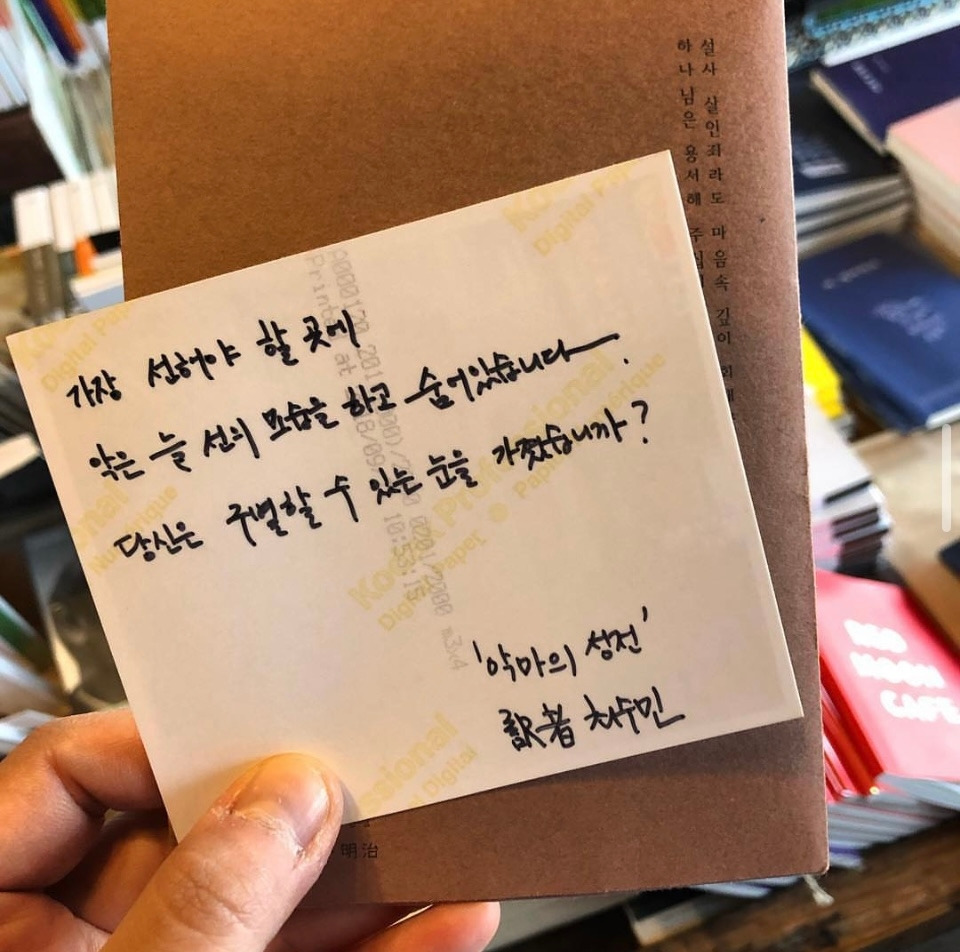 가장 선해야 할 곳에
악은 늘 선의 모습을 하고 숨어있습니다.
당신은 구별할 수 있는 눈을 가졌습니까?
'악마의 성전'
訳者 차수민
설사 살인죄라도 마음속 깊이
하나님은 용서해
明治
Kodak Professional
Digital Paper
Printed at
10:53:15
RED
MOON
CAFE